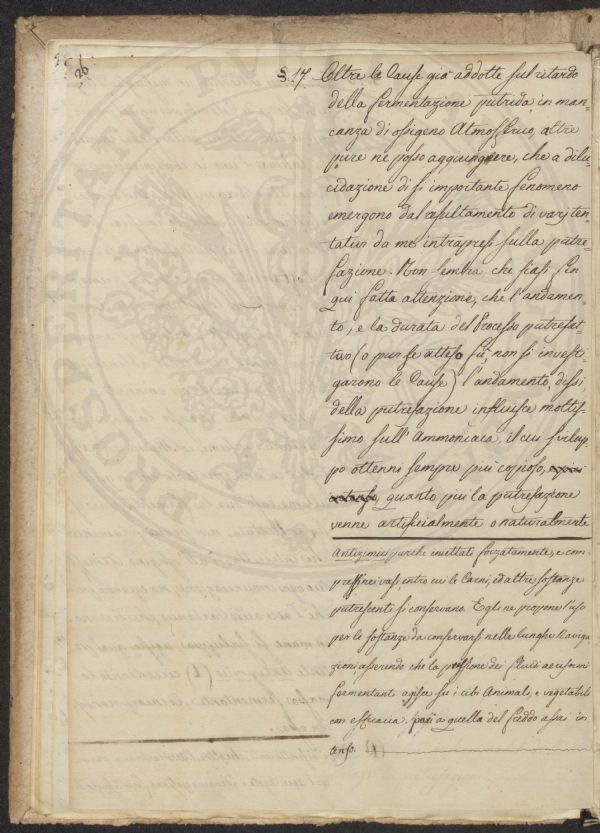 26
§. 17. Oltre le Cause già addotte sul ritardo
della fermentazione putrida in man-
canza di ossigeno Atmosferico, altre
pure ne posso aggiungere, che a dilu-
cidazione di sì importante fenomeno
emergono dal risultamento di varj ten-
tativi da me intrapresi sulla putre-
fazione. Non sembra che siasi sin
qui fatta attenzione, che l'andamen-
to, e la durata del Processo putrefat-
tivo (o pur se atteso fù, non si investi-
garono le Cause) l'andamento, dissi
della putrefazione influisce moltis-
simo sull'Ammoniaca, il cui svilup-
po ottenni sempre più copioso,
quanto più la putrefazione
venne artificialmente o naturalmente
Antizimici purche iniettati forzatamente, e com-
pressi nei vasi, entro cui le Carni, ed altre sostanze
putrescenti si conservano. Egli ne propone l'uso
per le sostanze da conservarsi nelle lunghe Naviga-
zioni asserendo che la pressione dei fluidi aeriformi
fermentanti agisce su i cibi Animali, e vegetabili
con efficacia pari a quella del freddo assai in-
tenso.